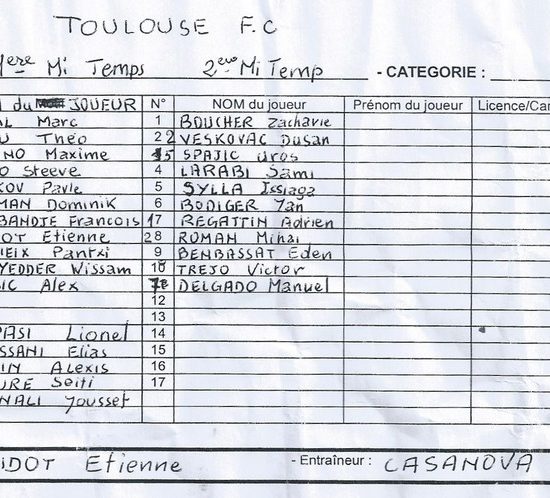 TOULOUSE F.C
1ere Mi Temps 2eme Mi Temp - CATEGORIE :
du JOUEUR N° NOM du joueur Prénom du joueur Licence/Car
AL Marc 1 BOUCHER Zacharie
U Théo 22 VESKOVAC Dusan
NO Maxime 15 SPAJIC Uros
O Steeve 4 LARABI Sami
KOV Pavle 5 SYLLA Issiaga
MAN Dominik 6 BODIGER Yan
BANDJE Francois 17 REGATTIN Adrien
DOT Etienne 28 ROMAN Mihai
IEIX Pantxi 9 BENBASSAT Eden
YEDDER Wissam 10 TREJO Victor
IC Alex DELGADO Manuel
12
13
PASI Lionel 14
SSANI Elias 15
IN Alexis 16
URE Seiti 17
NALI Youssef
IDOT Etienne - Entraîneur : CASANOVA